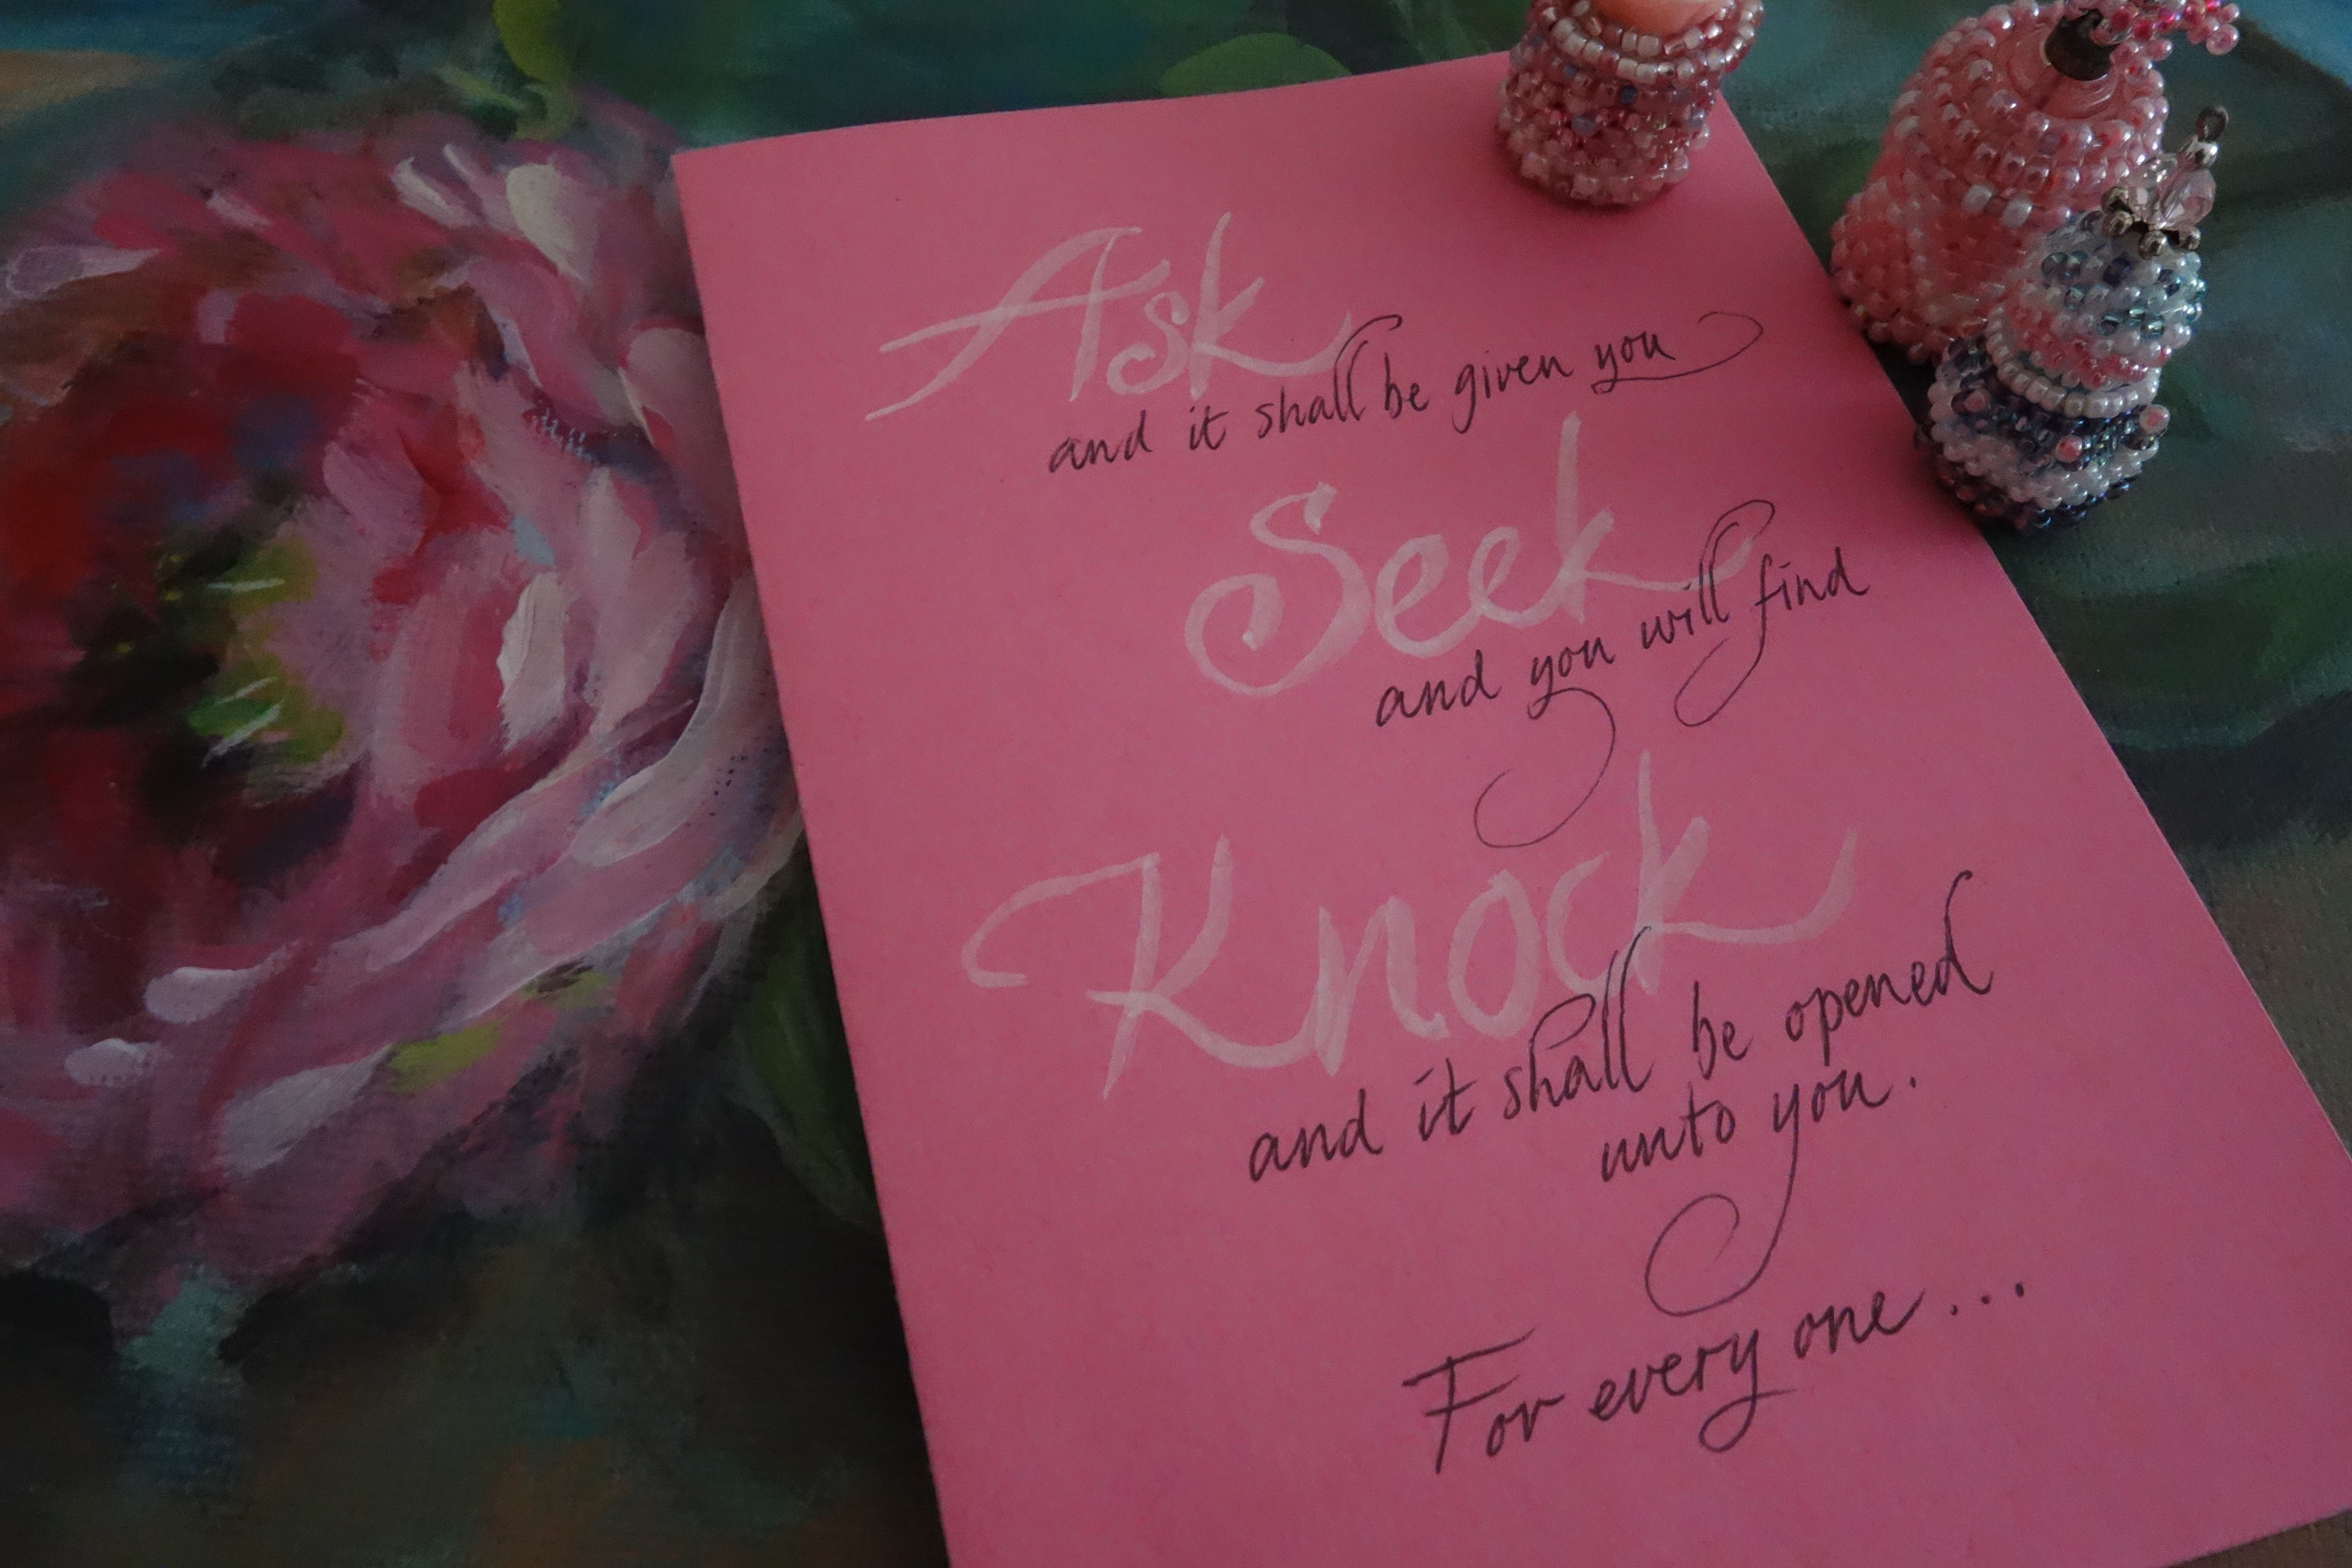 Ask
and it shall be given you
Seek
and you will find
Knock
and it shall be opened
unto you.
For every one...